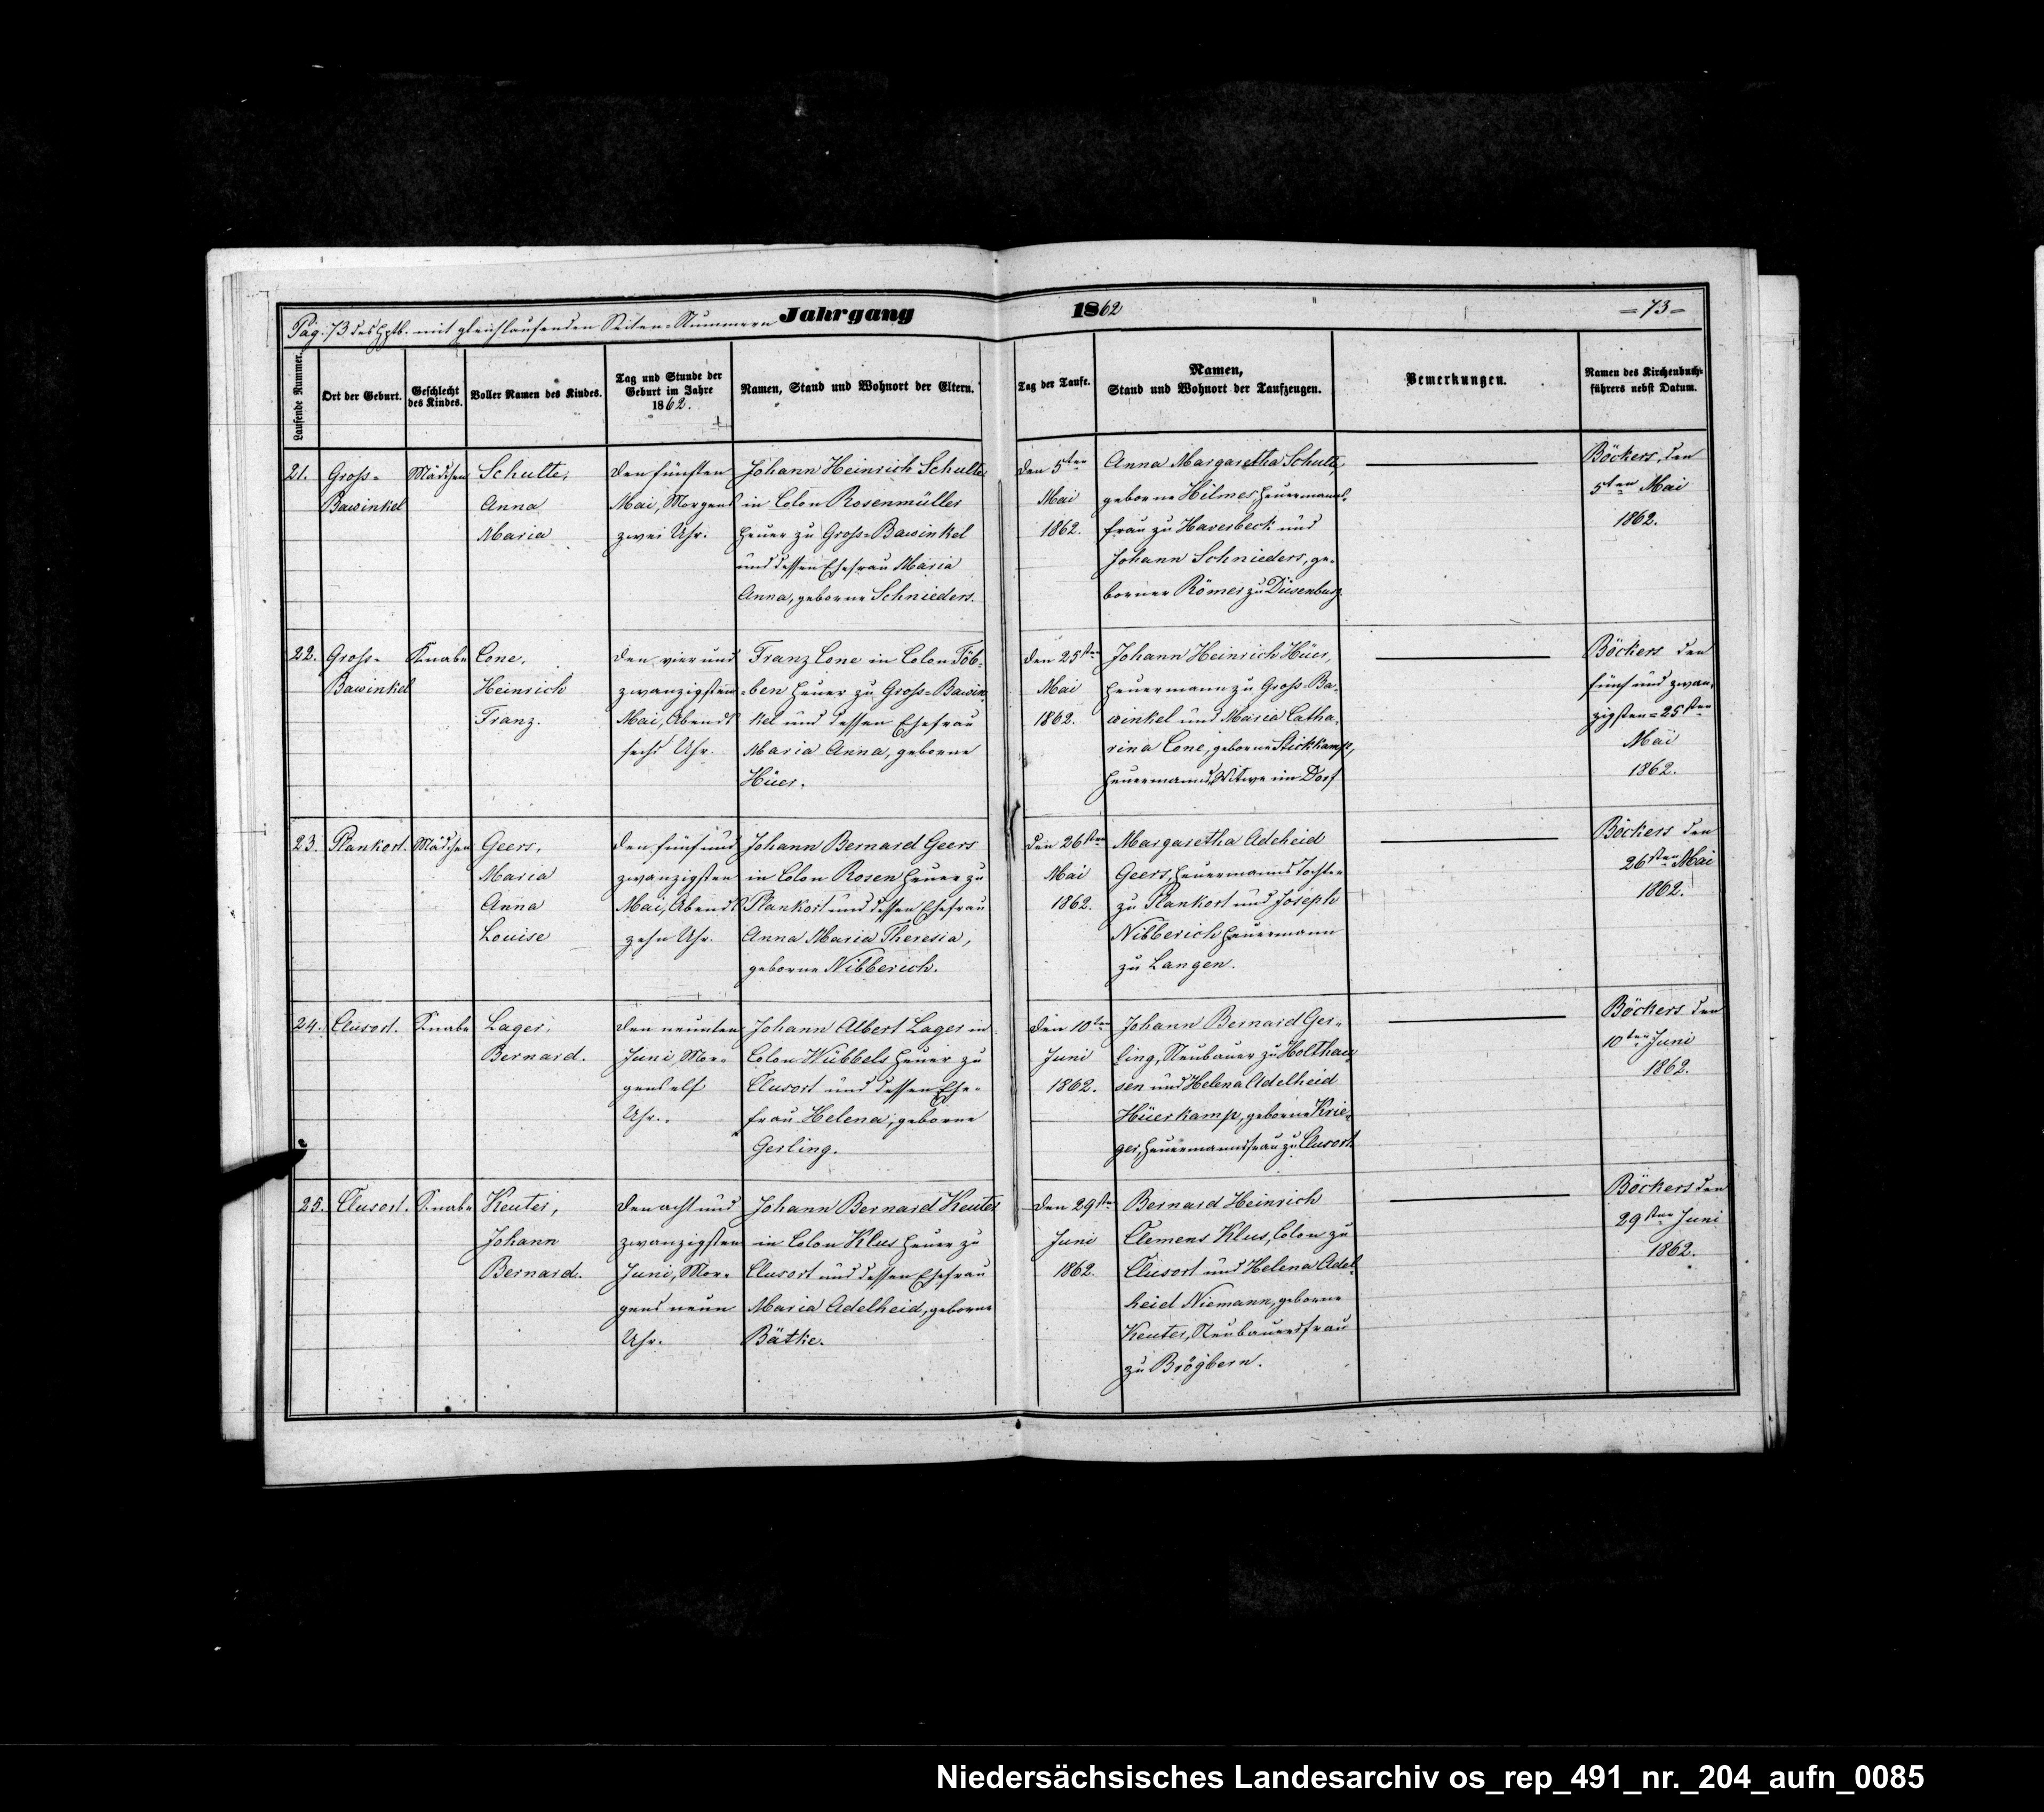 Pag. 73 des Hptb. mit gleichlaufenden Seiten-Nummern
Jahrgang 1862
=73=
Laufende Nummer.
Ort der Geburt.
Geschlecht des Kindes.
Voller Namen des Kindes.
Tag und Stunde der
Geburt im Jahre
1862.
Namen, Stand und Wohnort der Eltern.
Tag der Taufe.
Namen,
Stand und Wohnort der Taufzeugen.
Bemerkungen.
Namen des Kirchenbuch-
führers nebst Datum.
21.
Gross-
Bawinkel
Mädchen
Schulte,
Anna
Maria
den fünften
Mai, Morgens
zwei Uhr.
Johann Heinrich Schulte
in Colon Rosenmüllers
Heuer zu Gross-Bawinkel
und dessen Ehefrau Maria
Anna, geborne Schnieders.
den 5ten
Mai
1862.
Anna Margaretha Schulte,
geborne Hilmes Heuermanns-
frau zu Haverbeck und
Johann Schnieders, ge-
borner Römer zu Düsenburg.
Böckers, den
5ten Mai
1862.
22.
Gross-
Bawinkel
Knabe
Cone,
Heinrich
Franz.
den vier und
zwanzigsten
Mai, Abends
sechs Uhr.
Franz Cone in Colon Töb-
-ben Heuer zu Gross-Bawin-
kel und dessen Ehefrau
Maria Anna, geborne
Hüer.
den 25sten
Mai
1862.
Johann Heinrich Hüer,
Heuermann zu Gross-Ba-
winkel und Maria Catha-
rina Cone, geborne Stickkamp,
Heuermanns Witwe im Dorf
Böckers den
fünf und zwan-
zigsten = 25sten
Mai
1862.
23.
Plankort.
Mädchen
Geers,
Maria
Anna
Louise
den fünf und
zwanzigsten
Mai, Abends
zehn Uhr.
Johann Bernard Geers
in Colon Rosen Heuer zu
Plankort und dessen Ehefrau
Anna Maria Theresia,
geborne Nibberich.
den 26sten
Mai
1862.
Margaretha Adeheid
Geers, Heuermanns Tochter
zu Plankort und Joseph
Nibberich Heuermann
zu Langen.
Böckers den
26sten Mai
1862.
24.
Clusort.
Knabe
Lager,
Bernard.
den neunten
Juni, Mor-
gens elf
Uhr.
Johann Albert Lager in
Colon Wübbels Heuer zu
Clusort und dessen Ehe-
frau Helena, geborne
Gerling.
den 10ten
Juni
1862.
Johann Bernard Ger-
ling, Neubauer zu Holthau-
sen und Helena Adelheid
Hüerkamp, geborne Krie-
ger, Heuermannsfrau zu Clusort.
Böckers den
10ten Juni
1862.
25.
Clusort.
Knabe
Keuter,
Johann
Bernard.
den acht und
zwanzigsten
Juni, Mor-
gens neun
Uhr.
Johann Bernard Keuter
in Colon Klus Heuer zu
Clusort und dessen Ehefrau
Maria Adelheid, geborne
Bätke.
den 29sten
Juni
1862.
Bernard Heinrich
Clemens Klus, Colon zu
Clusort und Helena Adel-
heid Niemann, geborne
Keuter, Neubauersfrau
zu Brögbern.
Böckers den
29sten Juni
1862.
Niedersächsisches Landesarchiv os_rep_491_nr._204_aufn_0085